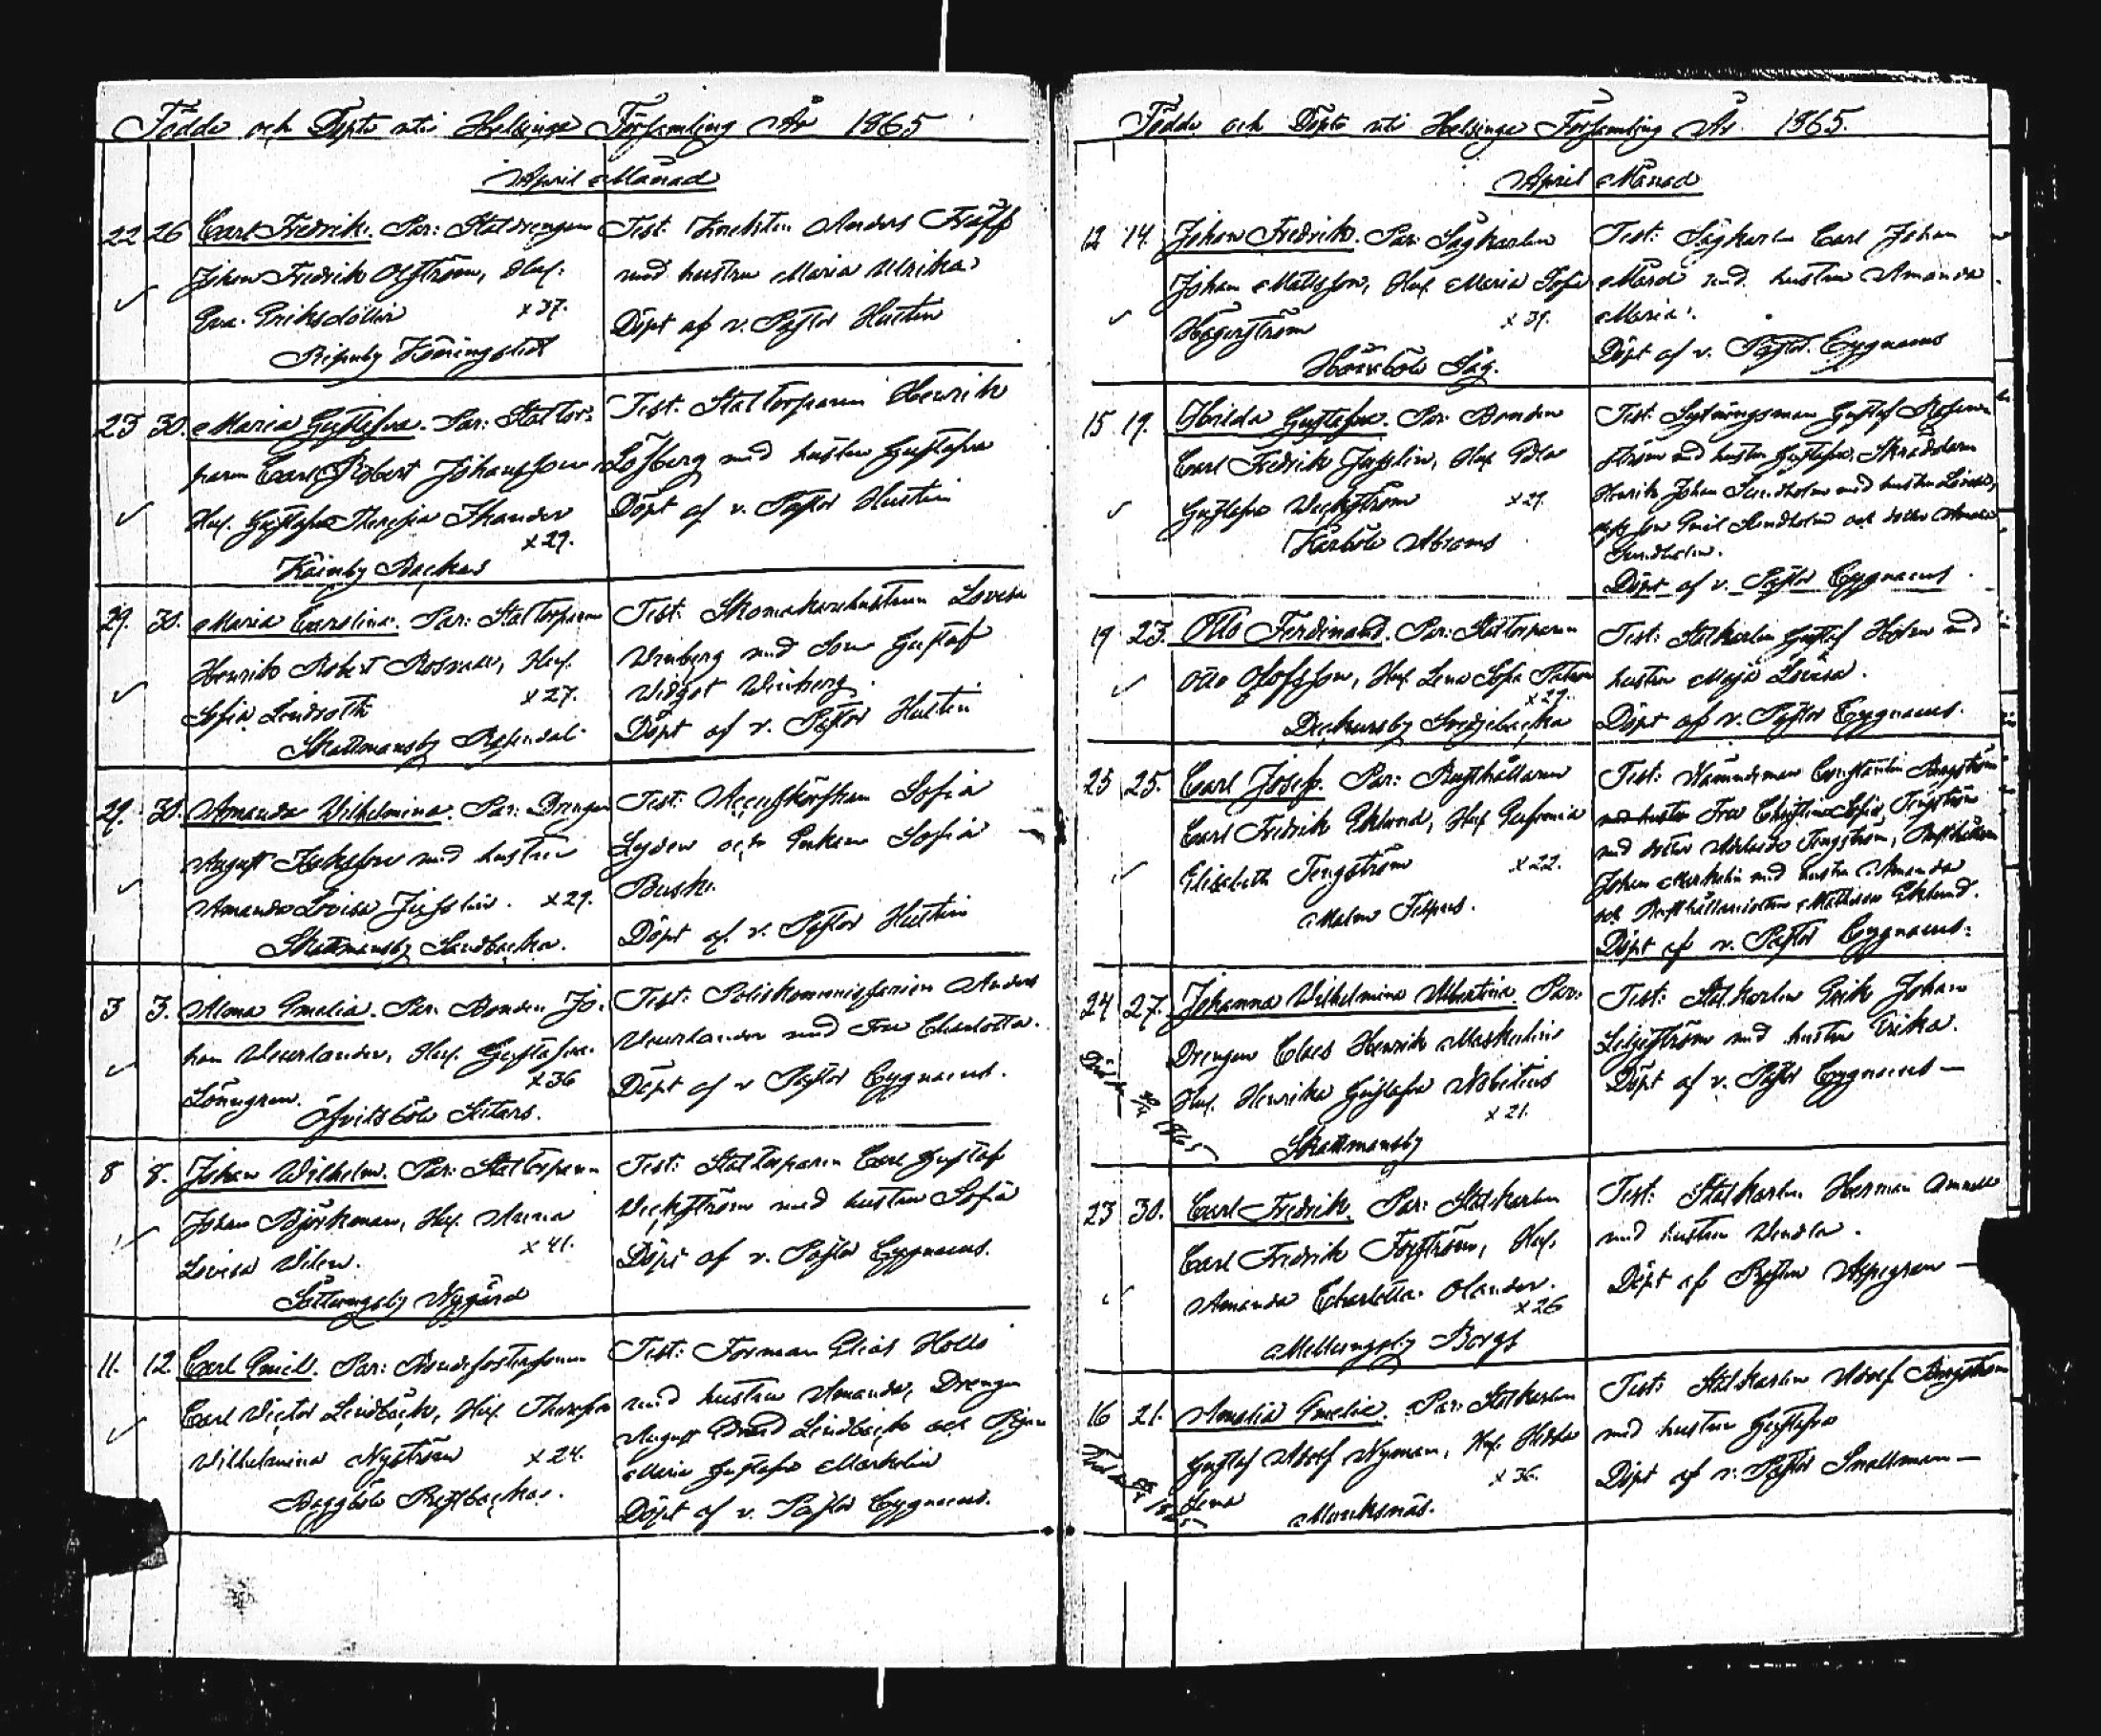 Födde och Döpte uti Helsinge Församling År 1865
April Månad
22 26 Carl Fredrik. Par: Statdrengen
Johan Fredrik Olfström, Hus:
Eva Eriksdotter x 37.
Ripuby Köningstedt
Test: Anders Träff
med hustru Maria Ulrika
Döpt af v. Pastor Hustin
23 30. Maria Gustafva. Par: Stattor-
paren Carl Robert Johansson
Hus. Gustafva Theresia Thander
x 29.
Käinby Backas
Test: Stattorparen Henrik
Löfberg med hustru Gustafva
Döpt af v. Pastor Hustin
29. 30. Maria Carolina. Par: Stattorparen
Henrik Robert Rosvall, Hus.
Sofia Lindroth x 27.
Skattmansby Rosendal
Test: Skomakarehustrun Lovisa
Winberg med Son Gustaf
Widgot Winberg.
Döpt af v. Pastor Hustin
29. 30. Amanda Wilhelmina. Par: Drengen
August med hustru
Amanda Lovisa x 29.
Skattmansby Sandbacka.
Test: Sofia
Lyden och Enkan Sofia
Busk.
Döpt af. v. Pastor Hustin
3 3. Alma Emelia. Par: Bonden Jo-
han Weurlander, Hus. Gustafva
Lönngren. x 36
Öfvitsböle Sitars.
Test: Poliskommissarien Anders
Weurlander med Fru Charlotta.
Döpt af v Pastor Cygnaeus.
8 8. Johan Wilhelm. Par: Stattorparen
Johan Björkman, Hus. Anna
Lovisa Wilen. x 41.
Sottungsby Nygård
Test: Stattorparen Carl Gustaf
Weckström med hustru Sofia
Döpt af v. Pastor Cygnaeus.
11. 12 Carl Emil. Par: Bondefostersonen
Carl Victor Lindbäck, Hus. Theresia
Wilhelmina Nyström x 24.
Baggböle
Test: Forman Elias Holls
med hustru Amanda, Drengen
August Lindbäck och Pigan
Maria Gustafva Markelin
Döpt af v. Pastor Cygnaeus.
Födde och Döpte uti Helsinge Församling År. 1865.
April Månad
12 14. Johan Fredrik. Par: Sågkarlen
Johan Mattsson, Hus. Maria Sofia
Hägerström x 39.
Håkansböle Såg.
Test: Sågkarlen Carl Johan
Mård med hustru Amanda
Maria.
Döpt af v. Pastor. Cygnaeus
15. 19. Hilda Gustafva. Par: Bonden
Carl Fredrik Hus. Edla
Gustafva Weckström x 29.
Kårböle Abrams
Test: Sytningsman Gustaf
ström med hustru Gustafva, Skräddaren
Henrik Johan Sundholm med hustru Lovisa,
Son Emil Sundholm och dotter Amanda
Sundholm.
Döpt af v. Pastor Cygnaeus
19 23. Otto Ferdinand. Par: Stattorparen
Otto Olofsson, Hus. Lena Sofia
x 29.
Dickursby
Test: Statkarlen Gustaf Holm med
hustru Maja Lovisa.
Döpt af v. Pastor Cygnaeus.
25 25. Carl Josef. Par: Rusthållaren
Carl Fredrik Eklund, Hus. Eufrosina
Elisabeth Tengström x 22.
Malm Filpus.
Test: Nämndeman Constantin Bergström
med hustru Fru Christina Sofia Tengström
med dotter Tengström, Rusthållaren
Johan Markelin med hustru Amanda
och Rusthållaredottren Mathilda Eklund.
Döpt af v. Pastor Cygnaeus.
24 27. Johanna Wilhelmina Albertina. Par:
Drengen Claes Henrik Maskelin
Hus. Henrika Gustafva Nobelius
x 21.
Skattmansby
Död 1865
Test: Statkarlen Erik Johan
Liljeström med hustru Erika.
Döpt af v. Pastor Cygnaeus —
23 30. Carl Fredrik. Par: Statkarlen
Carl Fredrik Forsström, Hus.
Amanda Charlotta Olander.
x 26
Mellungsby Borgs
Test: Statkarlen Herman
med hustru Wendla.
Döpt af Prosten Aspegren —
16 21. Amalia Emelia. Par: Statkarlen
Gustaf Adolf Nyman, Hus. Hedda
Lena x 36.
Munksnäs.
Test: Statkarlen Adolf Bergström
med hustru Gustafva
Döpt af v. Pastor Snellman —